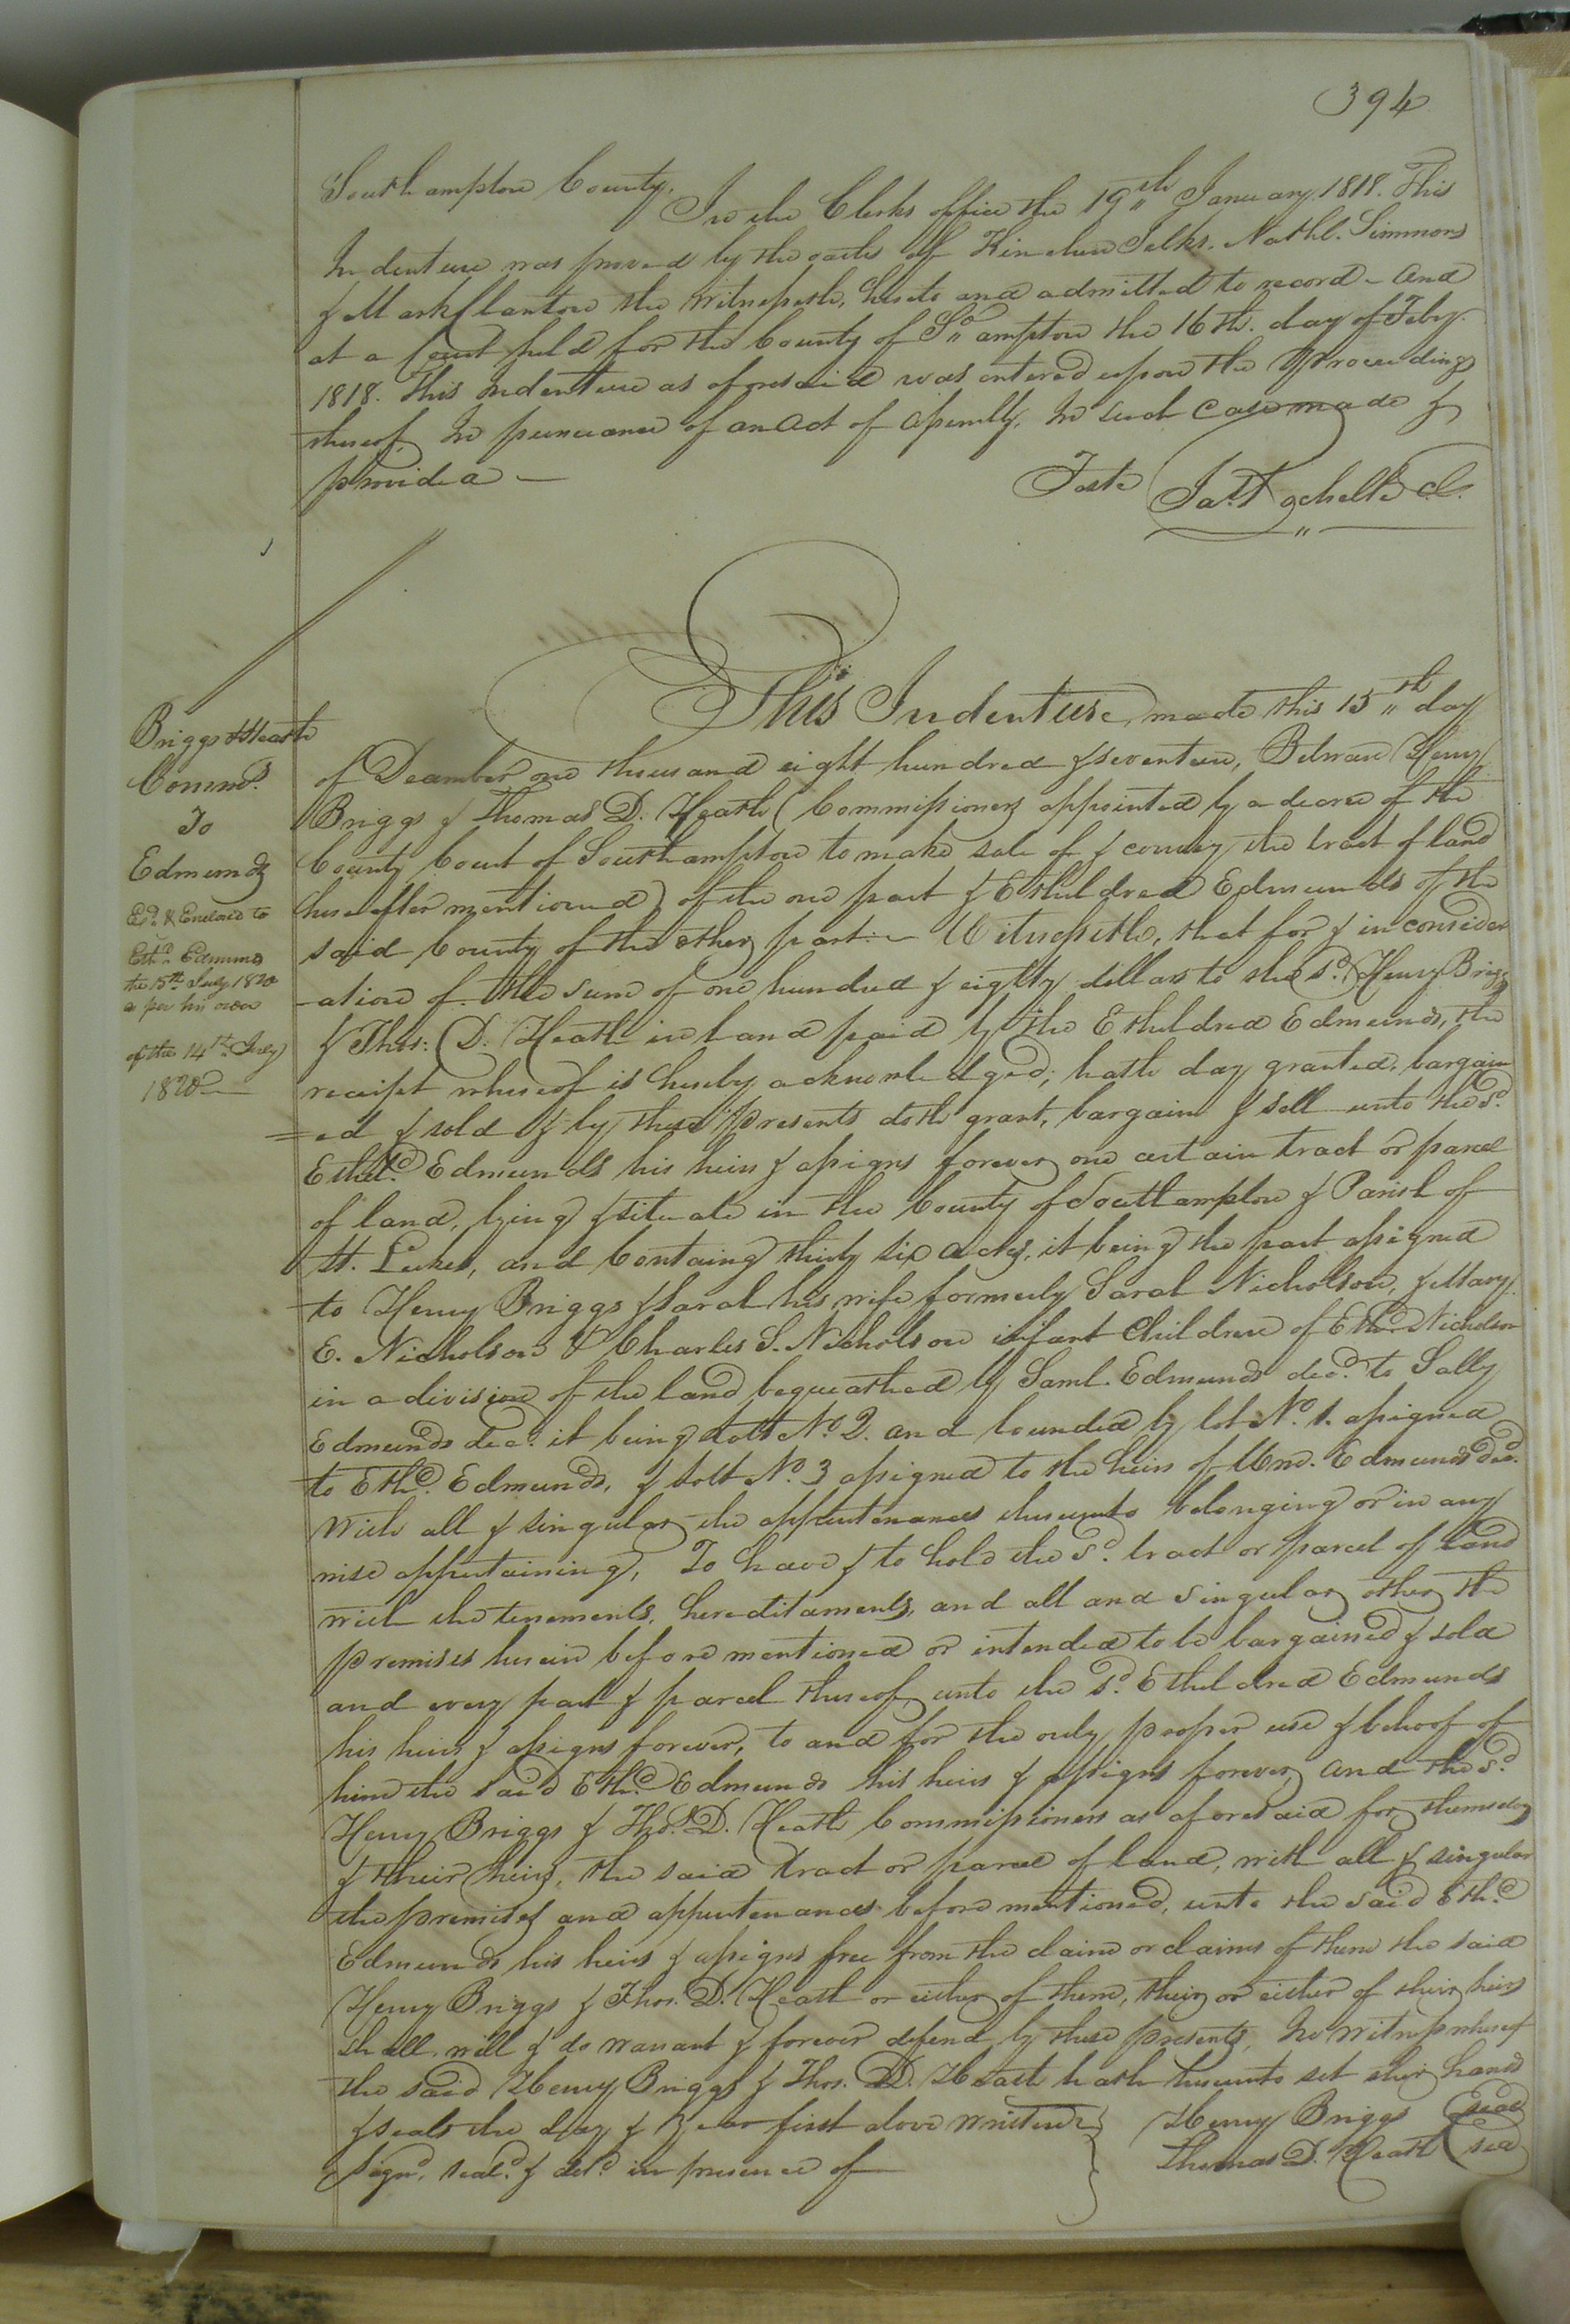 394
Southampton County,
In the Clerks office the 19th January 1818. This
Indenture was proved by the oaths of Kinchen Jelks. Nathl. Simmons
& Mark Clanton the Witnesseth, hereto and admitted to record - And
at a Court held for the County of So.ampton the 16th. day of Feby.
1818. This Indenture as aforesaid was entered upon the proceedings
thereof. In pursuance of an Act of Assembly, In such case made &
provided —
Teste Jas. Rochelle Cl.
Briggs & Heath
Commrs.
To
Edmunds
Exd. & Enclosed to
Ethd. Edmunds
the 15th July 1820
as per his order
of the 14th July
1820
This Indenture, made this 15th day
of December one thousand eight hundred & seventeen, Between Henry
Briggs & Thomas D. Heath (Commissioners appointed by a decree of the
County Court of Southampton to make sale of & convey the tract of land
hereafter mentioned) of the one part & Etheldred Edmunds of the
said County of the other part :- Witnesseth, that for & in consider
-ation of the sum of one hundred & eighty dollars to the sd. Henry Briggs
& Thos: D. Heath in hand paid by the Etheldred Edmunds, the
receipt whereof is hereby acknowledged; hath day granted, bargain
=ed & sold & by these presents doth grant, bargain & sell unto the sd.
Etheld. Edmunds his heirs & assigns forever one certain tract or parcel
of land, lying & situate in the County of Southampton & Parish of
St. Lukes, and Containg thirty six acres, it being the part assigned
to Henry Briggs & Sarah his wife formerly Sarah Nicholson, & Mary
E. Nicholson & Charles S. Nicholson infant Children of Nicholson
in a division of the land bequeathed by Saml. Edmunds decd. to Sally
Edmunds decd. it being Lott No. 2. and bounded by lot No. 1. assigned
to Ethd. Edmunds, & Lott No. 3 assigned to the heirs of Wm. Edmunds decd.
With all & singular the appurtenances thereunto belonging or in any
wise appertaining, To have & to hold the sd. tract or parcel of land
with the tenements, hereditaments, and all and singular other the
premises herein before mentioned or intended to be bargained & sold
and every part & parcel thereof, unto the sd. Etheldred Edmunds
his heirs & assigns forever, to and for the only proper use & behoof of
him the said Ethd. Edmunds his heirs & assigns forever, and the sd.
Henry Briggs & Thos. D. Heath Commissioners as aforesaid for themselves
& their heirs, the said tract or parcel of land, with all & singular
the premises and appurtenances before mentioned, unto the said Ethd.
Edmunds his heirs & assigns free from the claim or claims of them the said
Henry Briggs & Thos. D. Heath or either of them, their or either of their heirs
shall, will & do warrant & forever defend by these presents, In Witness whereof
the said Henry Briggs & Thos. D. Heath hath hereunto set their hands
& seals the day & year first above written
Signd. seald. & deld. in presence of
Henry Briggs (Seal
Thomas D. Heath (Sea